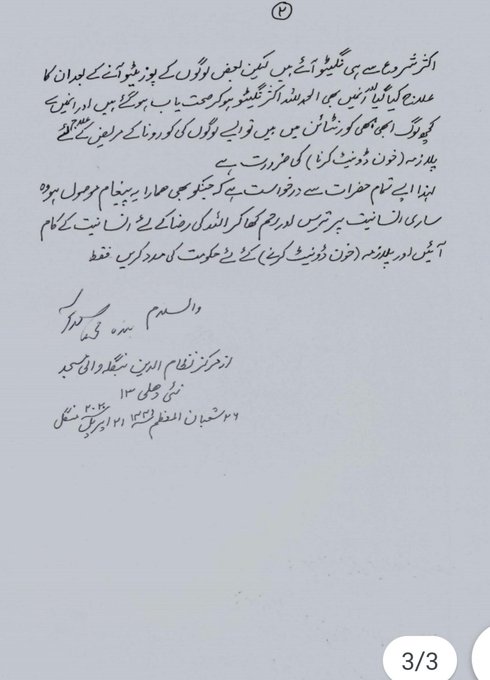 ۲
اکثر شروع سے ہی نگیٹو آئے ہیں لیکن بعض لوگوں کے پوزیٹیو آنے کے بعد ان کا
علاج کیا گیا اور انمیں بھی الحمد للہ اکثر نگیٹو ہوکر صحت یاب ہوگئے ہیں اور انمیں سے
کچھ لوگ ابھی بھی کورنٹائن میں ہیں تو ایسے لوگوں کی کورونا کے مریض کے علاج کیلئے
پلازمہ (خون ڈونیٹ کرنا) کی ضرورت ہے
لہذا ایسے تمام حضرات سے درخواست ہے کہ جنکو بھی ہمارا یہ پیغام موصول ہو وہ
ساری انسانیت پر ترس اور رحم کھا کر اللہ کی رضا کے لئے انسانیت کے کام
آئیں اور پلازمہ (خون ڈونیٹ کرنے) کے لئے حکومت کی مدد کریں فقط
والسلام
بندہ محمد سعد
از مرکز نظام الدین بنگلہ والی مسجد
نئی دھلی ۱۳
۲۶ شعبان المعظم ۲۱ اپریل ۲۰۲۰ منگل
3/3